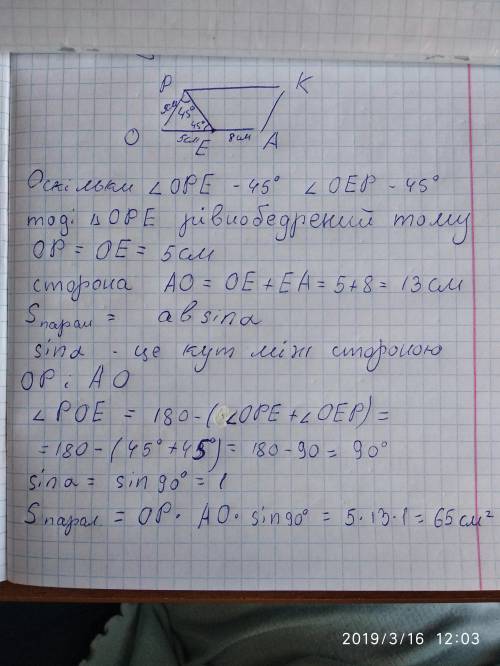 P K
5см 45°
45°
O 5см E 8см A
Оскільки ∠OPE - 45° ∠OEP - 45°
тоді △OPE рівнобедрений тому
OP = OE = 5 см
сторона AO = OE + EA = 5+8 = 13 см
Sпарал = a b sin a
sin a - це кут між стороною
OP і AO
∠POE = 180 - (∠OPE + ∠OEP) =
= 180 - (45° + 45°) = 180 - 90 = 90°
sin a = sin 90° = 1
Sпарал = OP · AO · sin 90° = 5 · 13 · 1 = 65 см²
2019/3/16 12:03